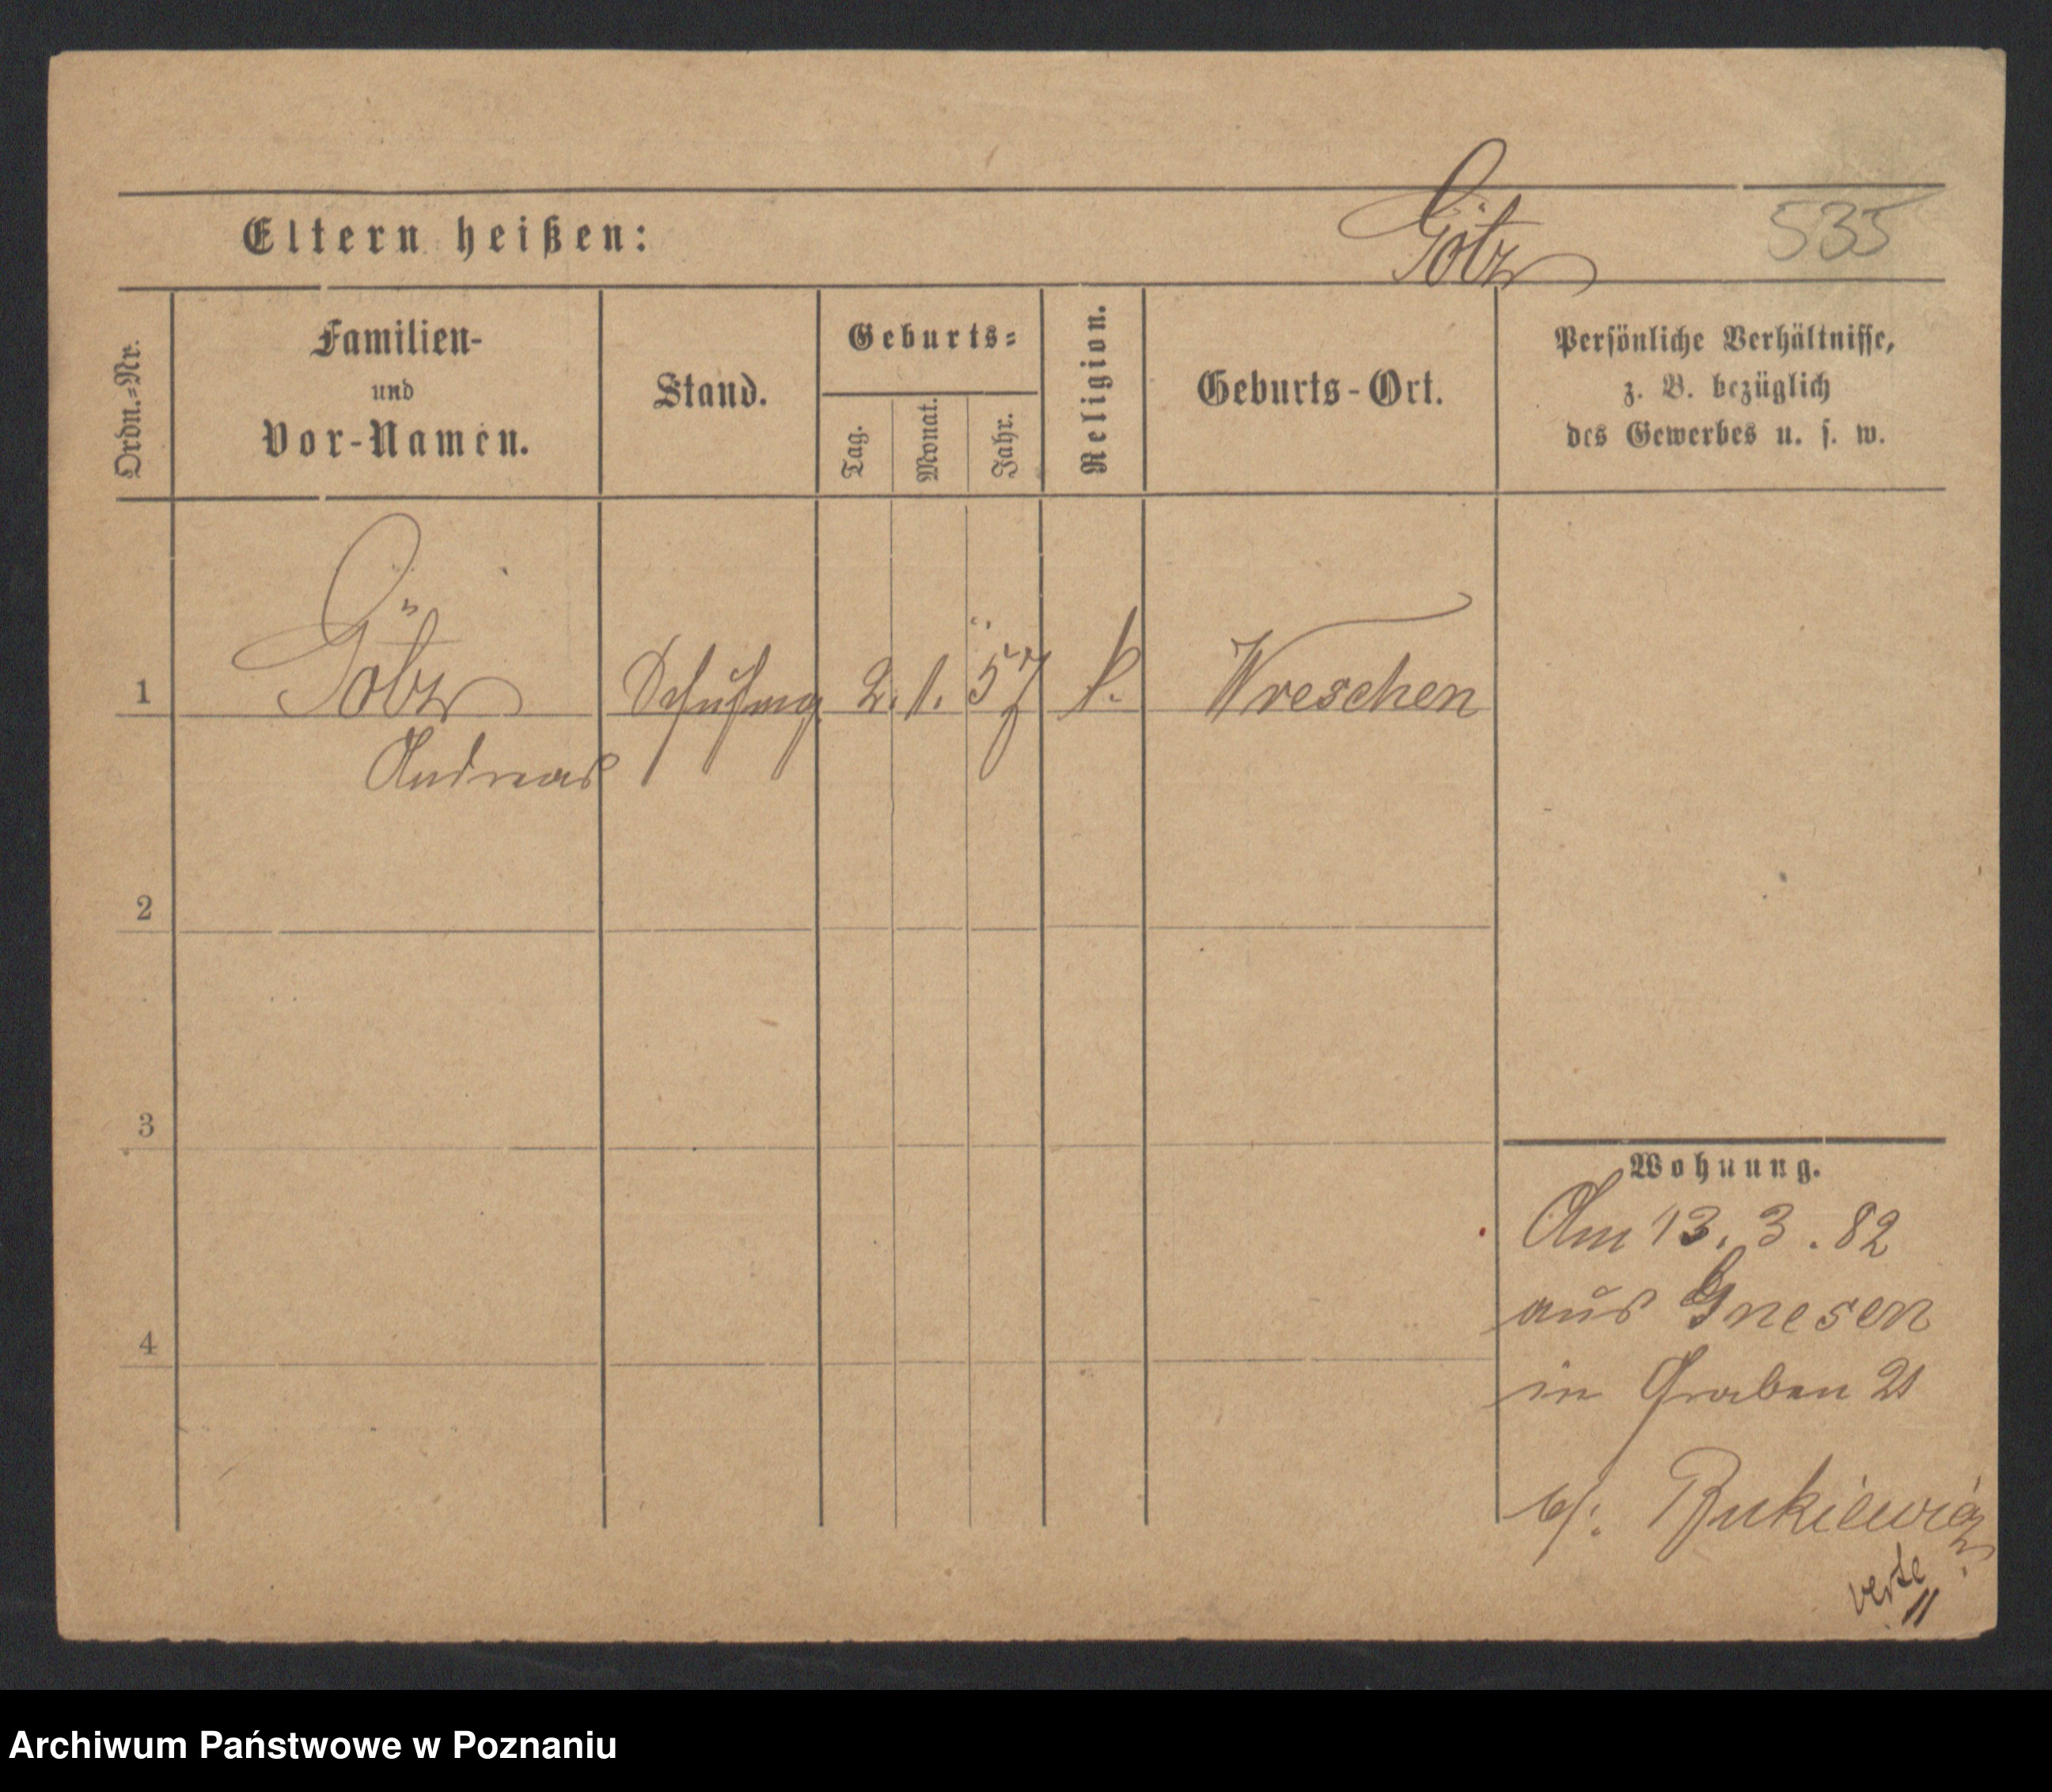 Götz
535
Eltern heißen:
Ordn.=Nr.
Familien-
und
Vor-Namen.
Stand.
Geburts=
Tag.
Monat.
Jahr.
Religion.
Geburts-Ort.
Persönliche Verhältnisse,
z. B. bezüglich
des Gewerbes u. s. w.
1
Götz
Andreas
2. 1. 57
k.
Wreschen
2
3
4
Wohnung.
Am 13. 3. 82
aus Gnesen
in Graben 21
b/.
verte
Archiwum Państwowe w Poznaniu